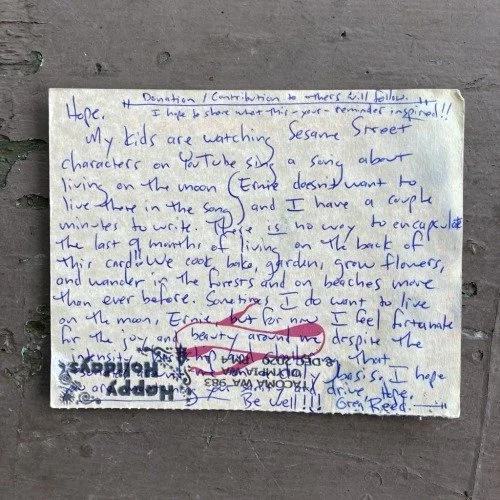 Donation / Contribution to others will follow.
I hope to share what this - your - reminder inspired!!
Hope.
My kids are watching Sesame Street
characters on YouTube sing a song about
living on the moon (Ernie doesn't want to
live there in the song) and I have a couple
minutes to write. There is no way to encapsulate
the last 9 months of living on the back of
this card!! We cook, bake, garden, grow flowers,
and wander in the forests and on beaches more
than ever before. Sometimes I do want to live
on the moon, Ernie, but for now I feel fortunate
for the joy and beauty around me despite the
intensity
that
basis. I hope
drive, here.
Be well!!! Greg Reed
Happy
Holidays
TACOMA WA 983
OLYMPIA WA
DEC 2020